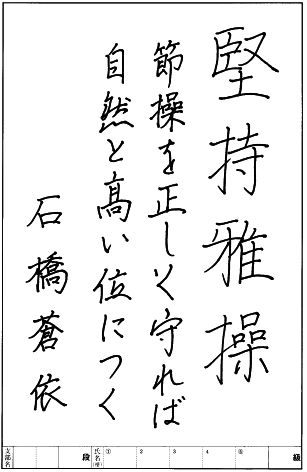 堅持雅操
節操を正しく守れば
自然と高い位につく
石橋蒼依
級 ⑤ 4 3 2 ① 氏名(号) 段 支部名